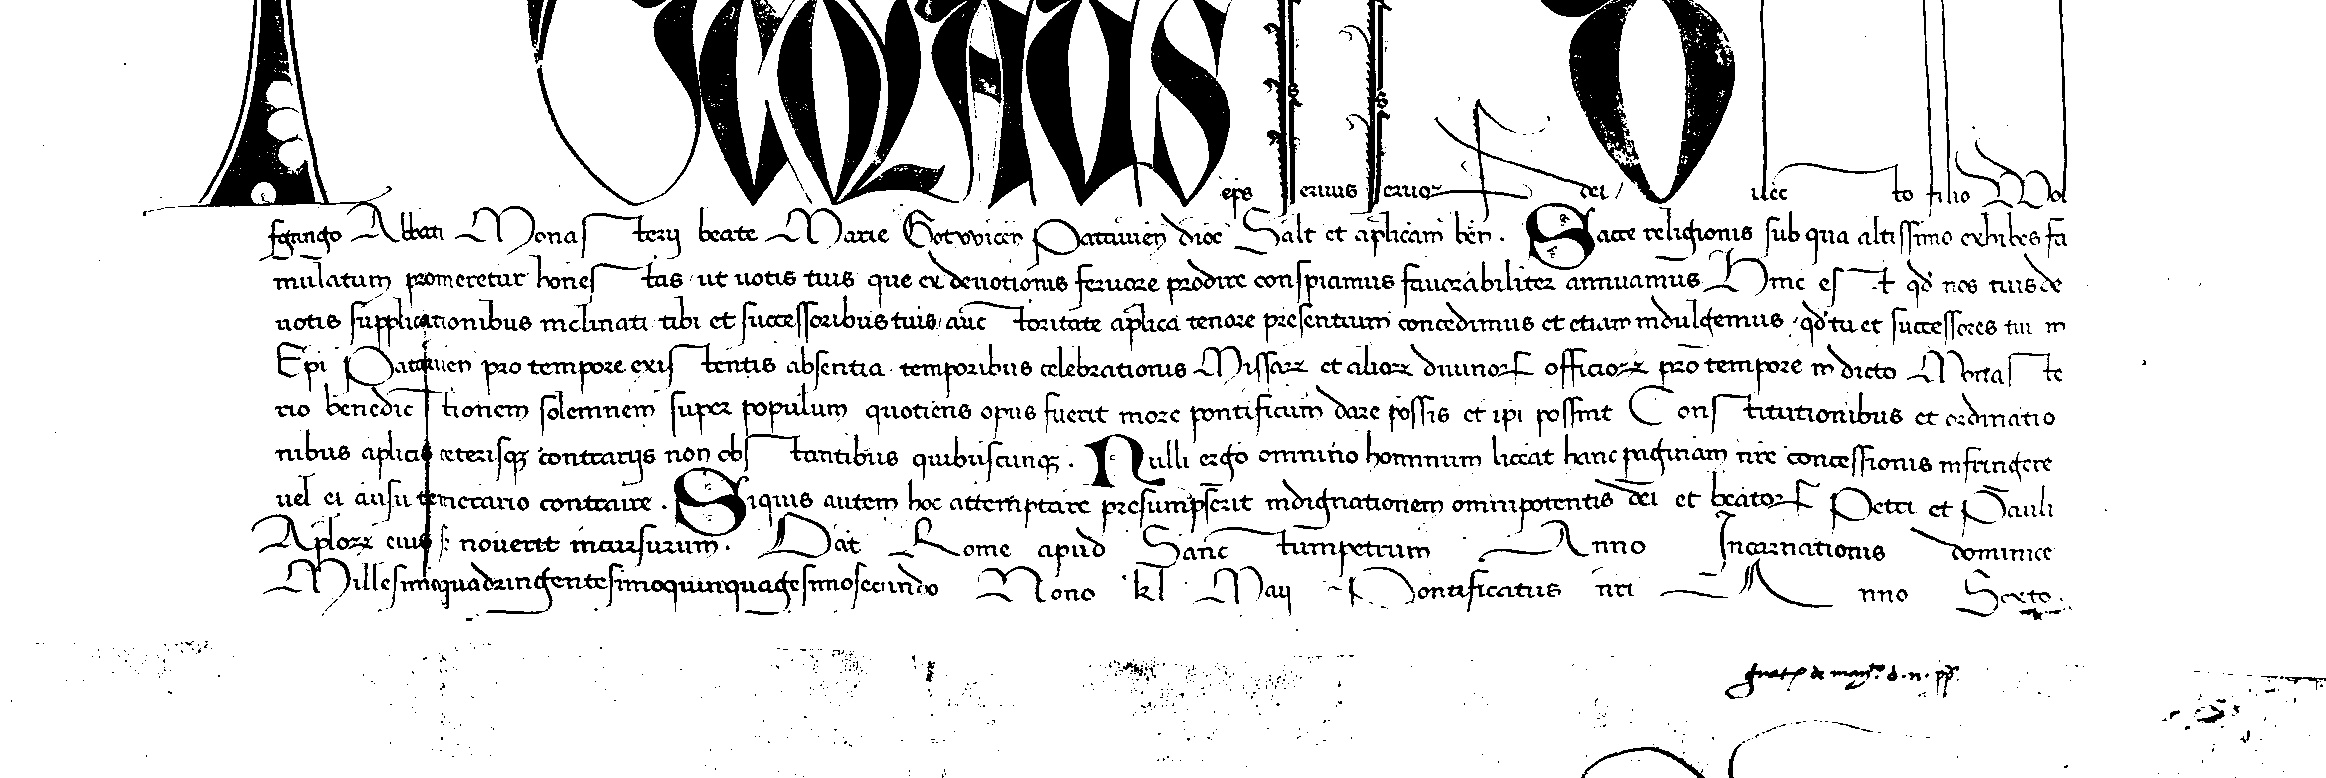 Nicolaus eps seruus seruorum dei Dilecto filio Wol
fgango Abbati Monasterij beate Marie Gotwicen Patauien dioc Salt et aplicam ben. Sacre religionis sub qua altissimo exhibes fa
mulatum promeretur honestas ut uotis tuis que ex deuotionis feruore prodire conspicimus fauorabiliter annuamus Hinc est qd nos tuis de
uotis supplicationibus inclinati tibi et successoribus tuis auctoritate aplica tenore presentium concedimus et etiam indulgemus qd tu et successores tui in
Epi Patauien pro tempore existentis absentia temporibus celebrationis Missarꝝ et aliorꝝ diuinorꝝ officiorꝝ pro tempore in dicto Monaste
rio benedictionem solemnem super populum quotiens opus fuerit more pontificum dare possis et ipi possint Constitutionibus et ordinatio
nibus aplicis ceterisqꝫ contrarijs non obstantibus quibuscunqꝫ. Nulli ergo omnino hominum liceat hanc paginam nre concessionis infringere
uel ei ausu temerario contraire. Siquis autem hoc attemptare presumpserit indignationem omnipotentis dei et beatorꝝ Petri et Pauli
Aplorꝝ eius se nouerit incursurum. Dat Rome apud Sanctumpetrum Anno Incarnationis dominice
Millesimoquadringentesimoquinquagesimosecundo Nono kl Maij Pontificatus nri Anno Sexto.
de man.º d. n. pp.